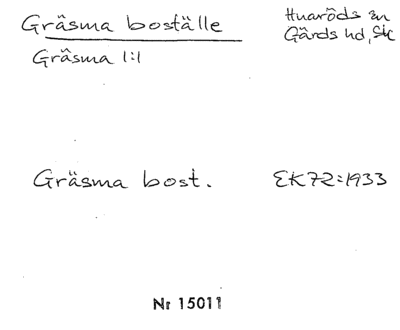 Gräsma boställe
Huaröds sn
Gärds hd, Skc
Gräsma 1:1
Gräsma bost. EK72:1933
Nr 15011